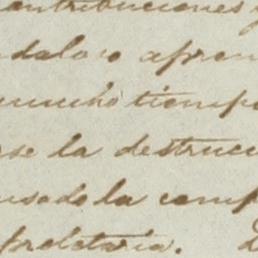 ontribuciones y
ndaloso apren
mucho tiempo
rse la destrucc
usado la comp
proletaria. D